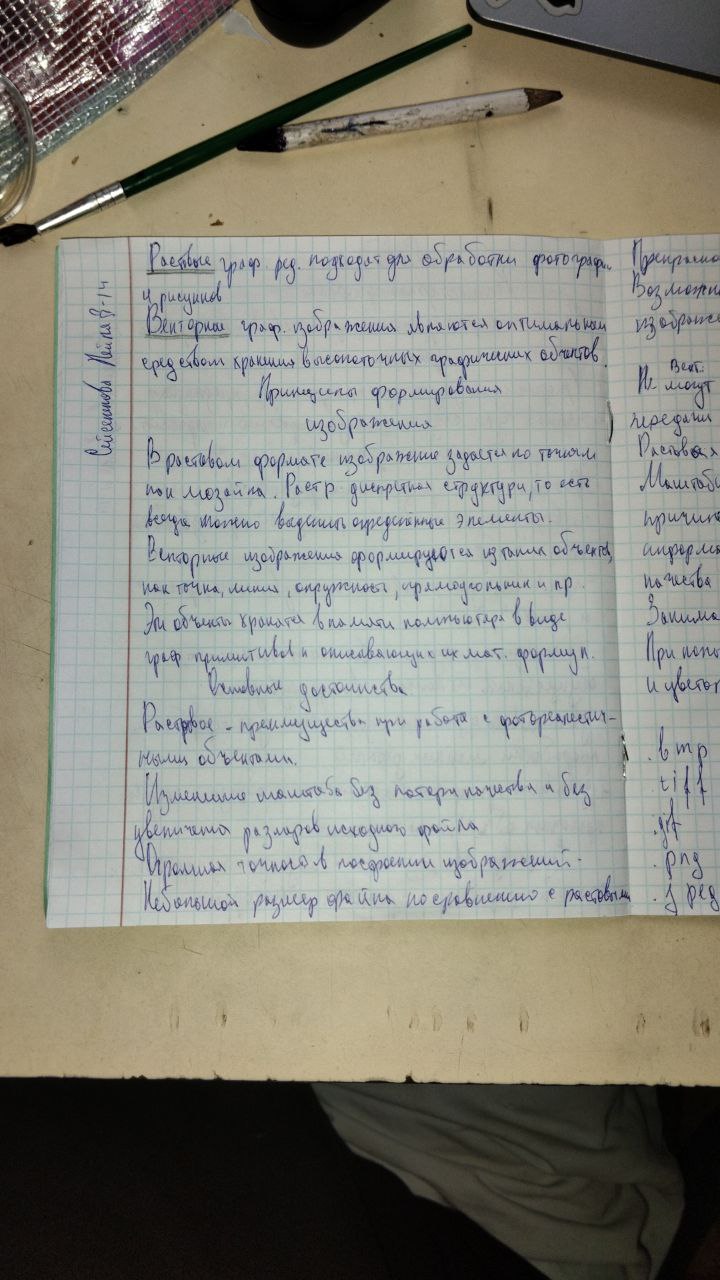 Раствые граф. ред. подходят для обработки фотографии
и рисунков
Векторные граф. изображения являются оптимальным
средством хранения высокоточных графических объектов.
Принципы формирования
изображения
В растовом формате изображение задается по точкам
как мозайка. Растр дискретная структура, то есть
всегда можно выделить определённые элементы.
Векторные изображения формируются из таких объектов,
как точка, линия, окружность, прямоугольник и пр.
Эти объекты хранятся в памяти компьютера в виде
граф. примитивов и описывающих их мат. формул.
Основные достоинства
Растовое - преимущества при работе с фотореалистич-
ными объектами.
Изменение масштаба без потери качества и без
увеличения размеров исходного файла
Огромная точность в построении изображений.
Небольшой размер файла по сравнению с растовыми
Прекрасно
Возможн
изображе
Вект.
Не могут
передачи
Растовая
Масштаб
причин
информ
качества
Занима
При
и цветов
.bmp
.tiff
.gif
.png